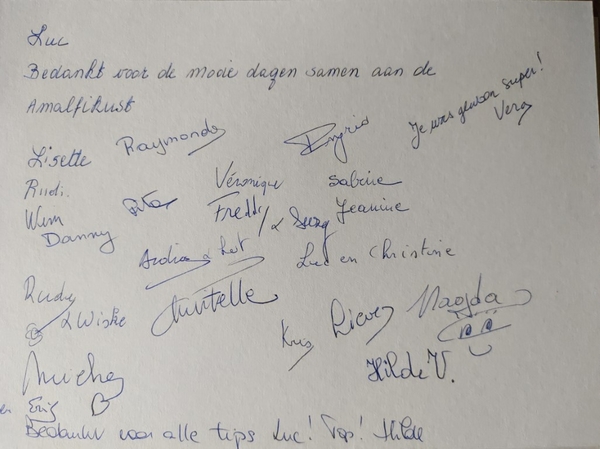 Luc
Bedankt voor de mooie dagen samen aan de
Amalfikust
Je was gewoon super!
Vera
Lisette Raymonda Ingrid
Rudi. Véronique Sabine
Wim Rita Freddy & Jeanine
Danny
Luc en Christine
Rudy
& Wiske
Kris Lieve Magda
Hilde V.
Eric
Bedankt voor alle tips Luc! Top! Hilde